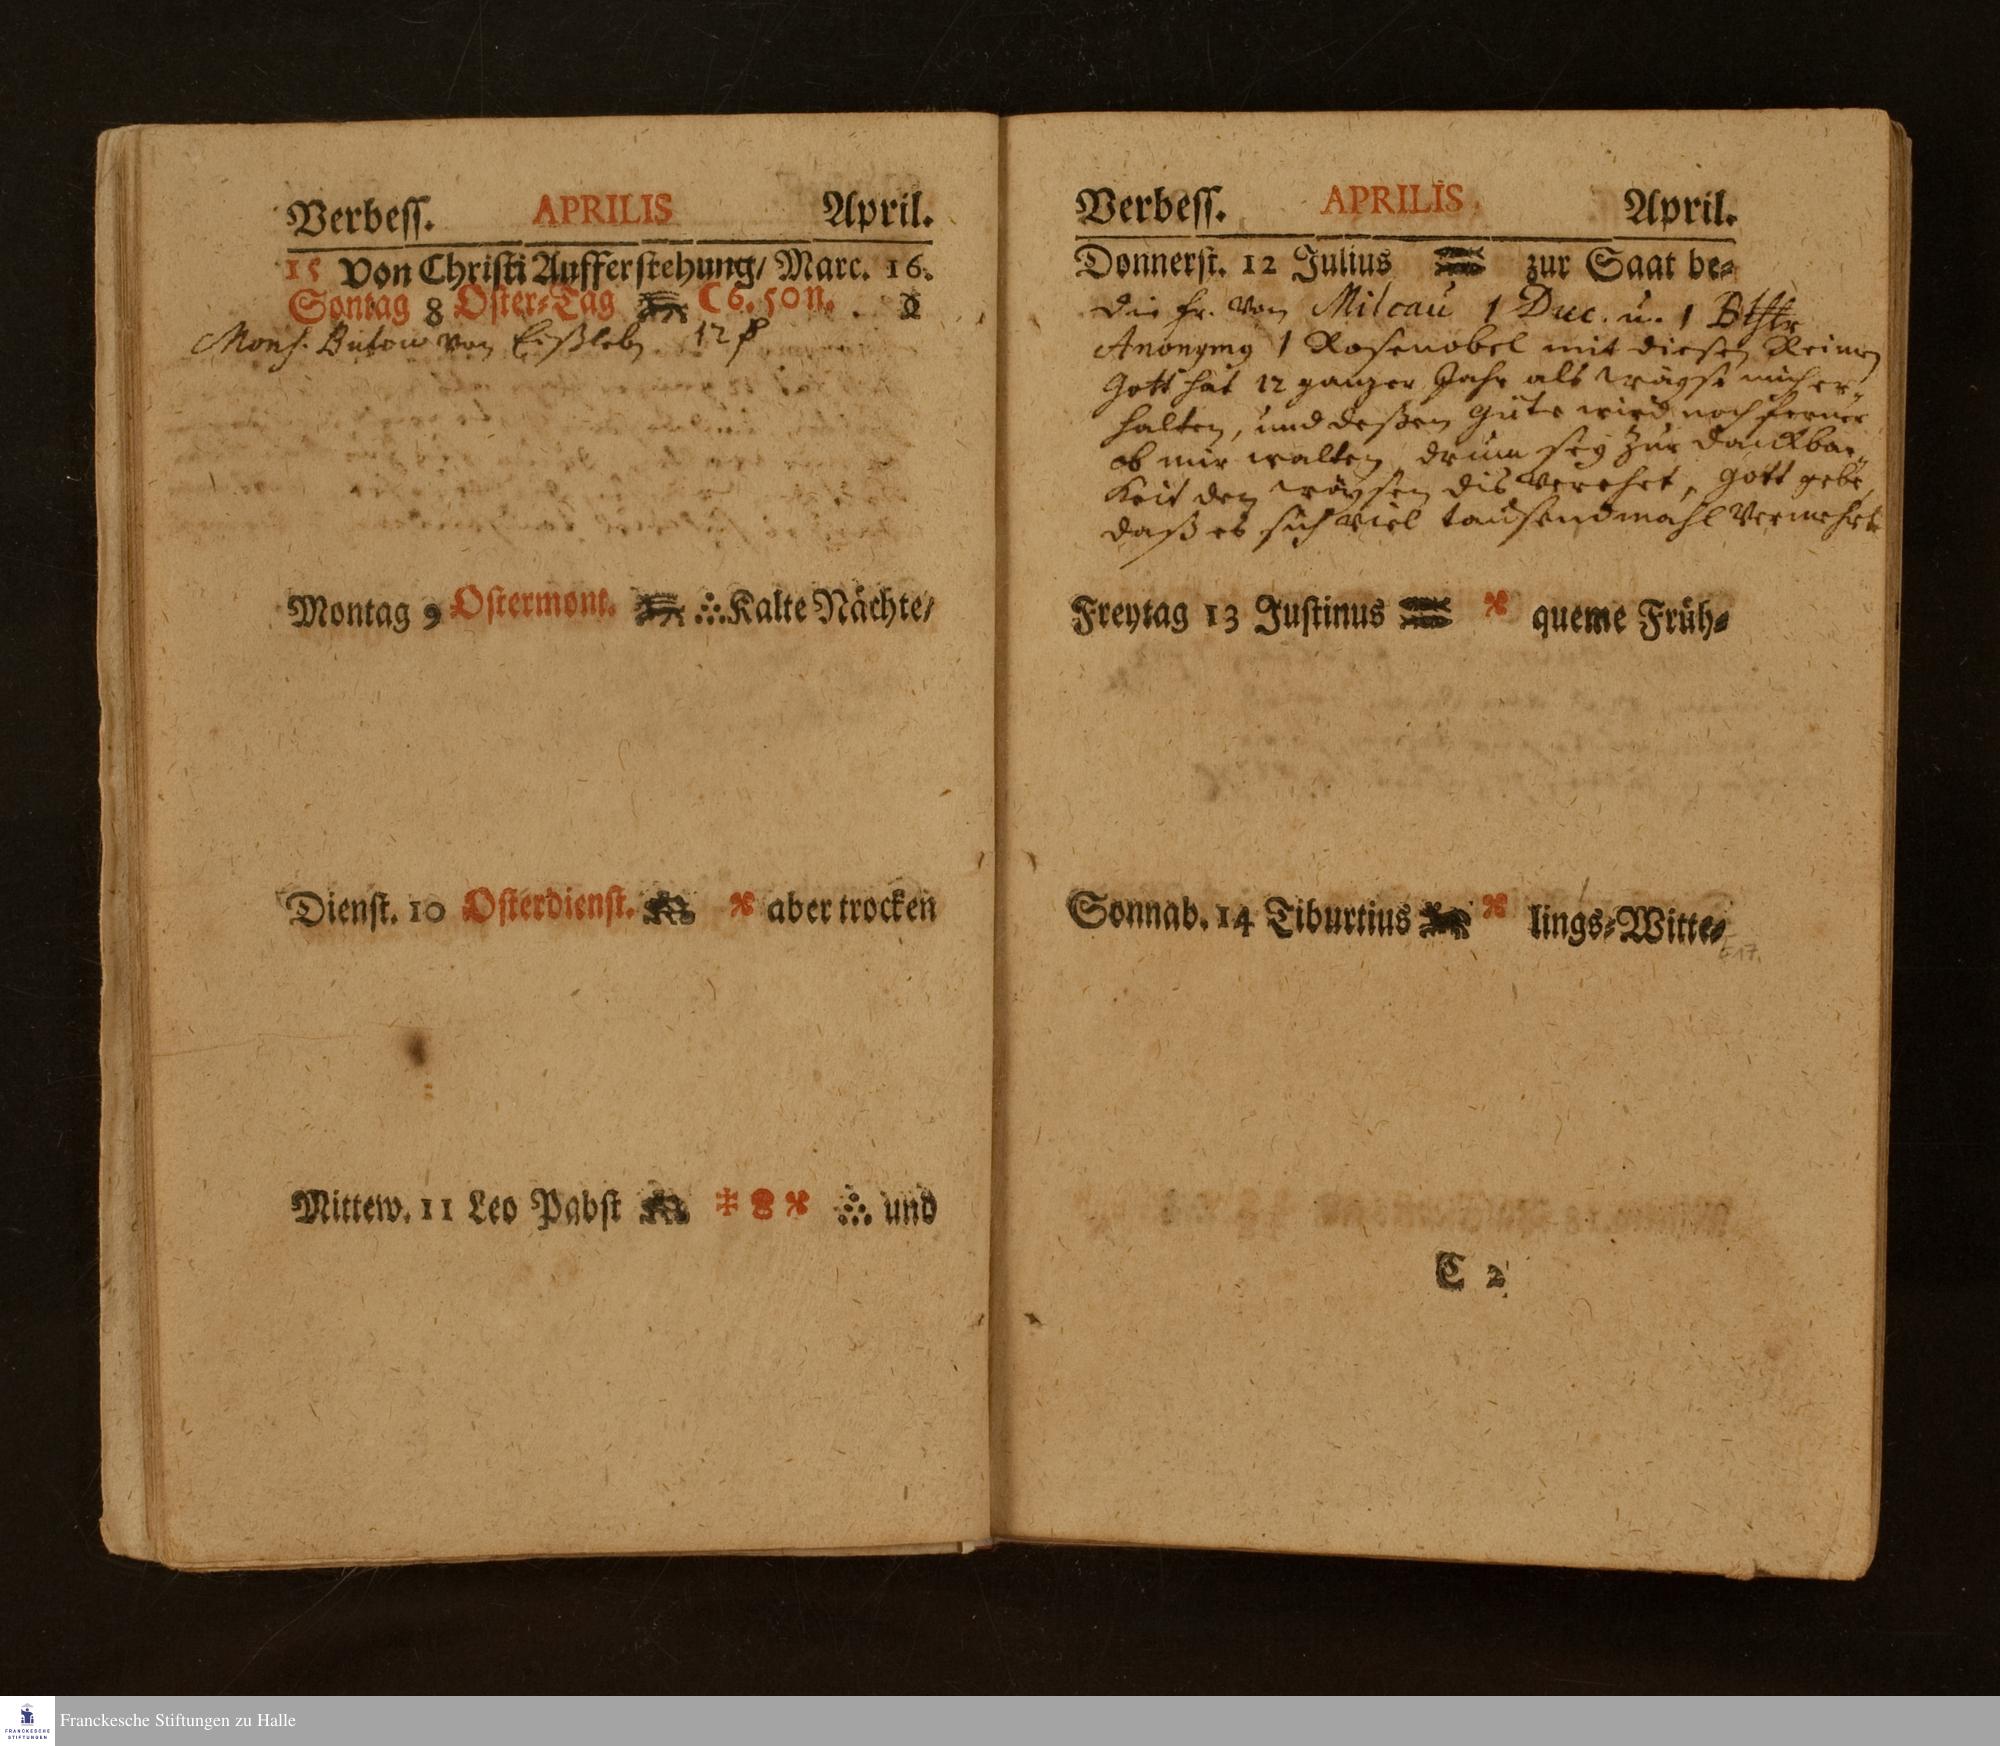 Verbess. APRILIS April.
15 Von Christi Aufferstehung/ Marc. 16.
Sontag 8 Oster-Tag ☾ 6. 50 n.
Mons. Butow von Eißleb 12
Montag 9 Ostermont. Kalte Nächte/
Dienst. 10 Osterdienst. aber trocken
Mittew. 11 Leo Pabst und
Verbess. APRILIS April.
Donnerst. 12 Julius zur Saat be-
die Fr. von Milcau 1 Duc. u. 1
1 Rosenobel mit diesen Reimen
Gott hat 12 ganzer Jahr als wäyse mich er-
halten, und deßen Güte wird noch ferner
ob mir walten, drum sey zur danckbar-
keit den wäysen dis verehrt, Gott gebe,
daß es sich viel tausendmahl vermehrt
Freytag 13 Justinus queme Früh-
Sonnab. 14 Tiburtius lings-Witte-
C 2
FRANCKESCHE
STIFTUNGEN
Franckesche Stiftungen zu Halle